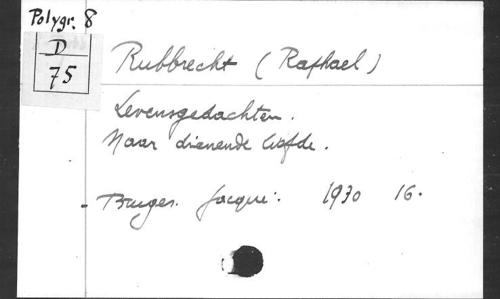 Polygr. 8
D
75
Rubbrecht (Rafhael)
Levensgedachten.
Naar dienende liefde.
Bruges. Jacqué: 1930 16.